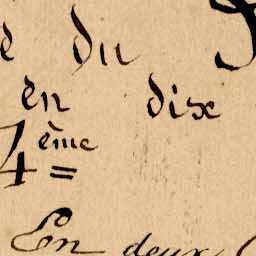 e du
en dix
4ème =
En deux